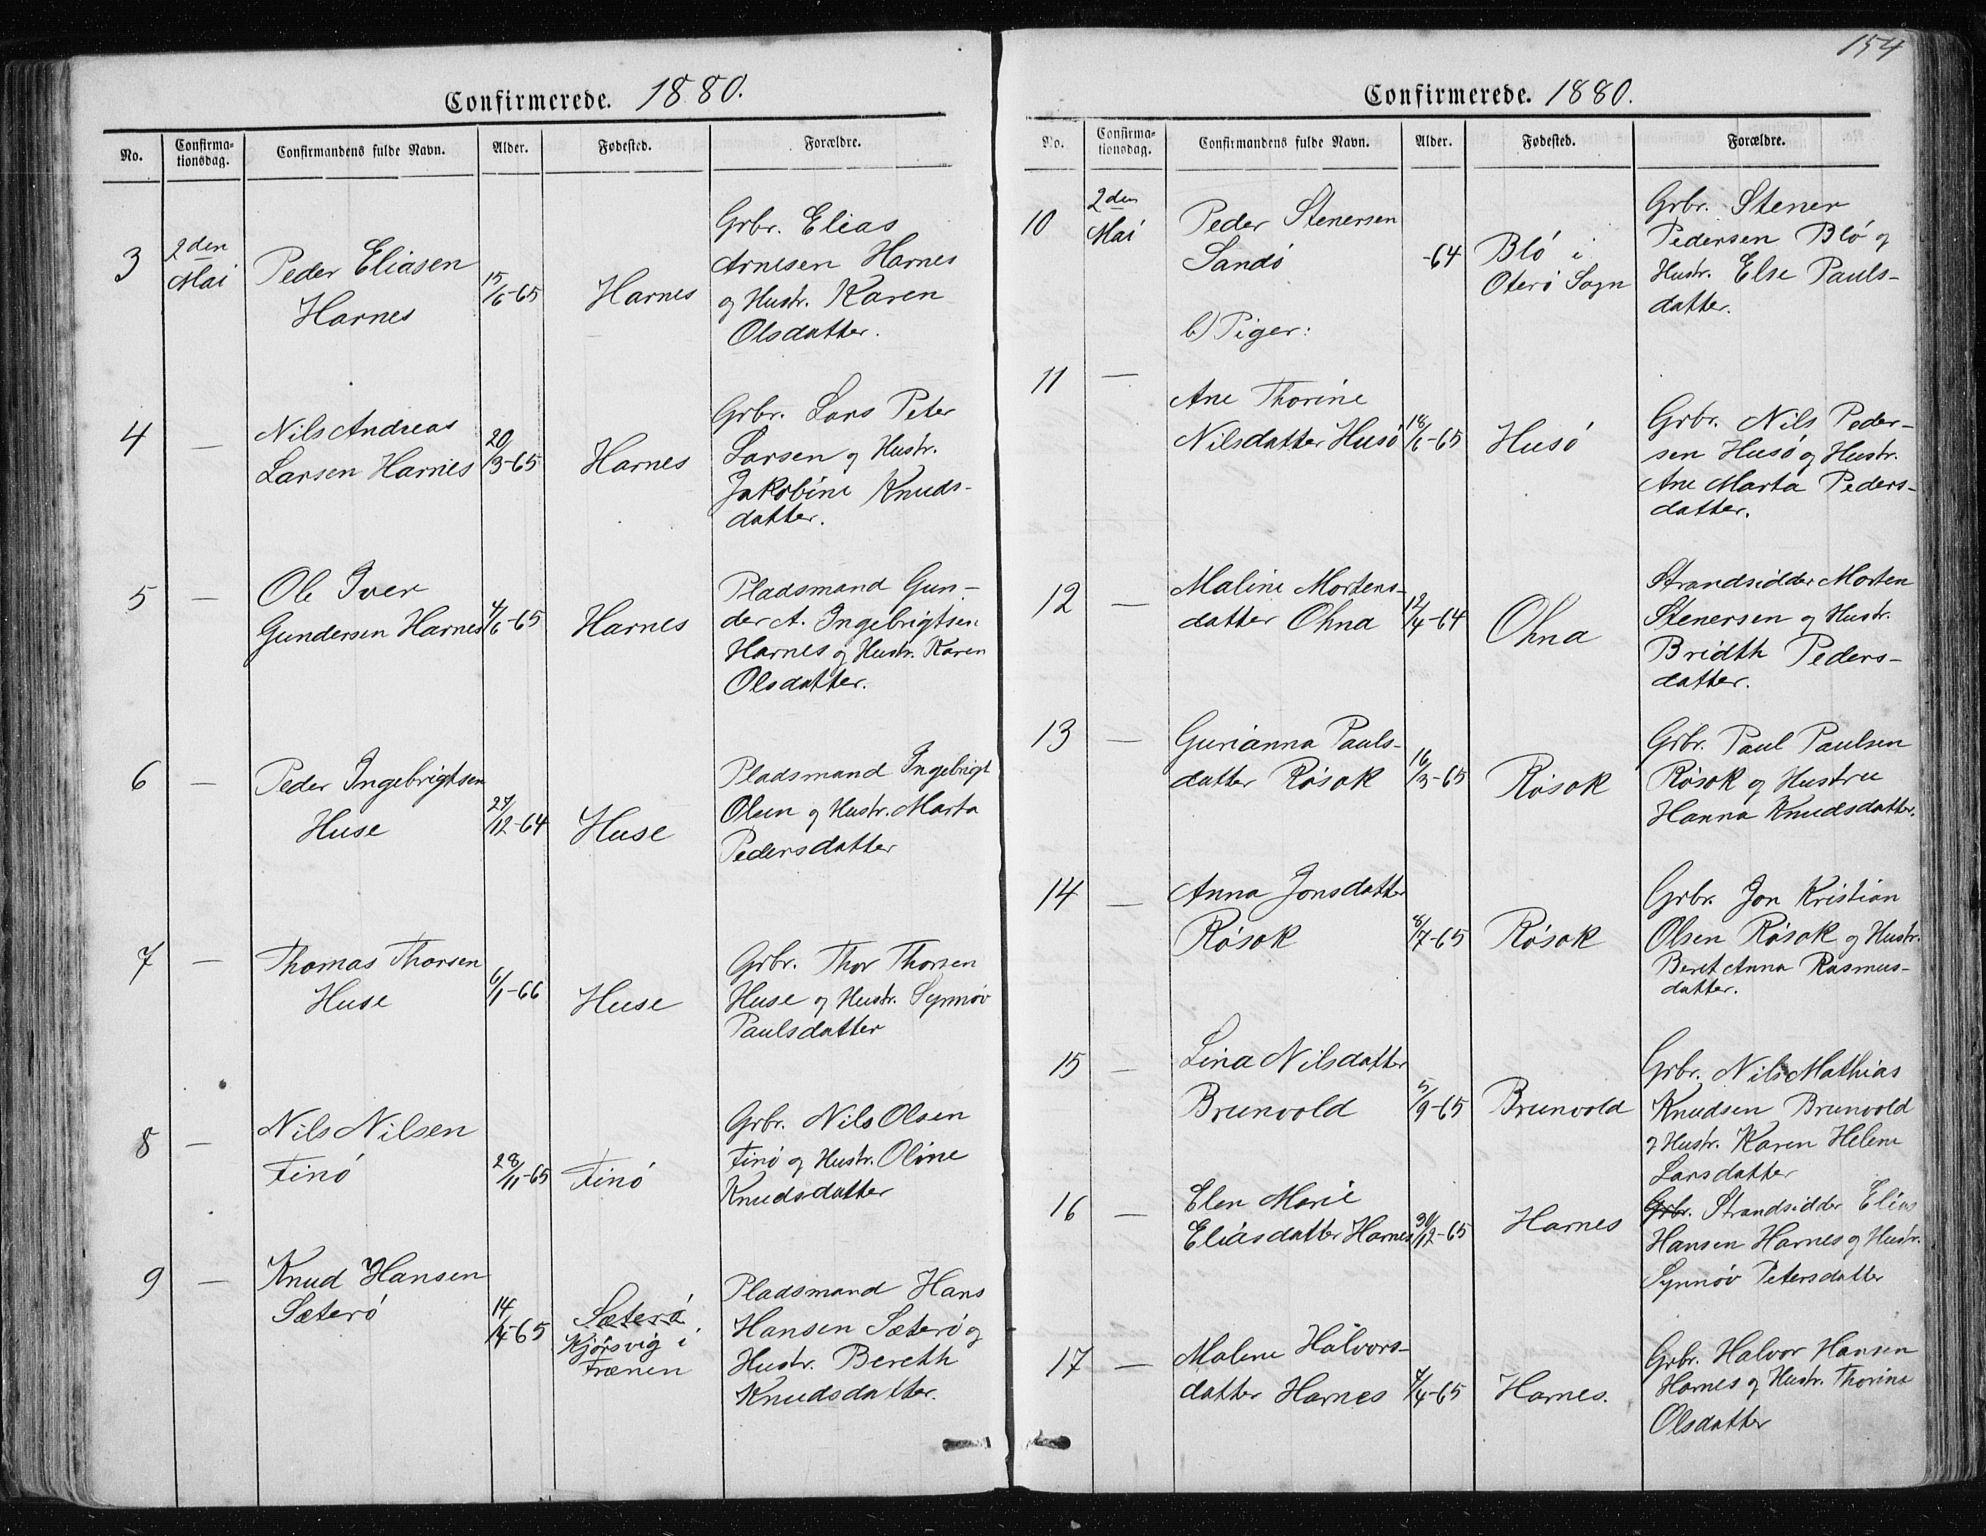 Confirmerede. 1880.
No. Confirma-tionsdag. Confirmandens fulde Navn. Alder. Fødested. Forældre.
3 2den Mai
Peder Eliasen
Harnes
15/6-65
Harnes
Grbr. Elias
Arnesen Harnes
og Hustr. Karen
Olsdatter.
4 —
Nils Andreas
Larsen Harnes
20/3-65
Harnes
Grbr. Lars Peter
Larsen og Hustr.
Jakobine Knuds-
datter.
5 —
Ole Iver
Gundersen Harnes
4/6-65
Harnes
Pladsmand Gun-
der A. Ingebrigtsen
Harnes og Hustr. Karen
Olsdatter.
6 —
Peder Ingebrigtsen
Huse
27/12-64
Huse
Pladsmand Ingebrigt
Olsen og Hustr. Marta
Pedersdatter
7 —
Thomas Thorsen
Huse
6/1-66
Huse
Grbr. Thor Thorsen
Huse og Hustr. Synnøv
Paulsdatter
8 —
Nils Nilsen
Finö
28/11-65
Finö
Grbr. Nils Olsen
Finö og Hustr. Oline
Knudsdatter
9 —
Knud Hansen
Sæterö
14/4-65
Sæterö
Kjörsvig i
Frænen
Pladsmand Hans
Hansen Sæterö og
Hustr. Bereth
Knudsdatter.
154
Confirmerede. 1880.
No. Confirma-tionsdag. Confirmandens fulde Navn. Alder. Fødested. Forældre.
10 2den Mai
Peder Stenersen
Sandö
-64
Blö i
Oterö Sogn
Grbr. Stener
Pedersen Blö og
Hustr. Else Pauls-
datter.
b) Piger:
11 —
Ane Thorine
Nilsdatter Husö
18/6-65
Husö
Grbr. Nils Peder-
sen Husö og Hustr.
Ane Marta Peders-
datter.
12 —
Maline Mortens-
datter Ohna
12/4-64
Ohna
Strandsidder Morten
Stenersen og Hustr.
Bridth Peders-
datter.
13 —
Gurianna Pauls-
datter Rösok
16/3-65
Rösok
Grbr. Paul Paulsen
Rösok og Hustru
Hanna Knudsdatter.
14 —
Anna Jonsdatter
Rösok
8/7-65
Rösok
Grbr. Jon Kristian
Olsen Rösok og Hustr.
Beret Anna Rasmus-
datter.
15 —
Lina Nilsdatter
Brunvold
5/9-65
Brunvold
Grbr. Nils Mathias
Knudsen Brunvold
og Hustr. Karen Helene
Larsdatter
16 —
Elen Marie
Eliasdatter Harnes
30/12-65
Harnes
Grbr. Strandsidder Elias
Hansen Harnes og Hustr.
Synnöv Petersdatter
17 —
Malene Halvors-
datter Harnes
4/4-65
Harnes.
Grbr. Halvor Hansen
Harnes og Hustr. Thorine
Olsdatter